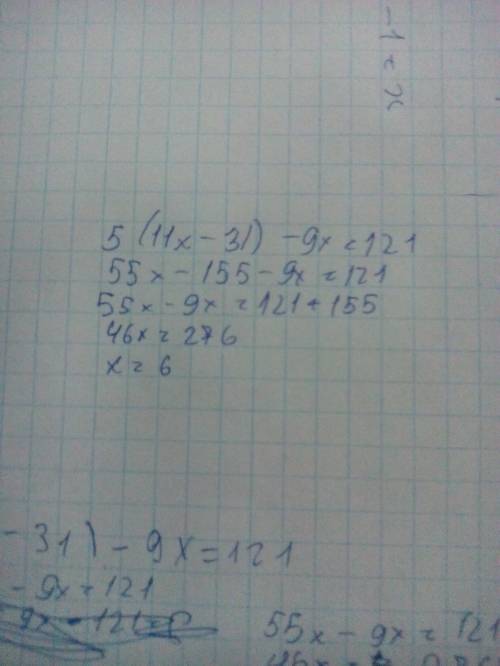 -1 = x
5 (11x - 31) - 9x = 121
55x - 155 - 9x = 121
55x - 9x = 121 + 155
46x = 276
x = 6
- 31) - 9x = 121
- 9x = 121
55x - 9x = 121